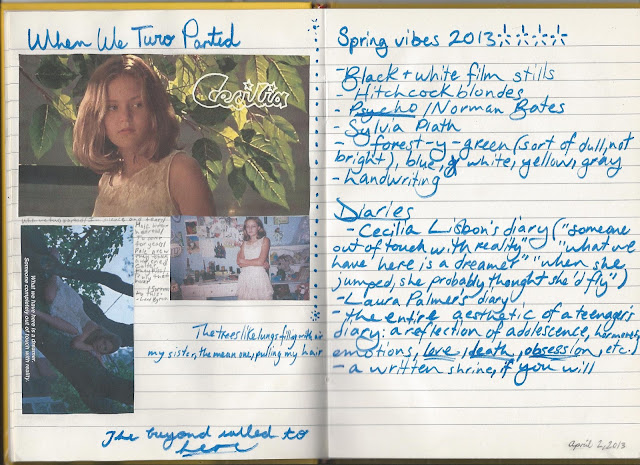 When We Two Parted
Cecilia
When we two parted In silence and tears
Half broken-
hearted
for years
Lord Byron
What we have here is a dreamer.
Someone completely out of touch with reality.
The trees like lungs filling with air
my sister, the mean one, pulling my hair
The beyond called to
here
Spring vibes 2013
- Black + white film stills
- Hitchcock blondes
- Psycho / Norman Bates
- Sylvia Plath
- forest-y-green (sort of dull, not
bright), blue, & white, yellow, gray
- handwriting
Diaries
- Cecilia Lisbon's diary ("someone
out of touch with reality" "what we
have here is a dreamer" "when she
jumped, she probably thought she'd fly")
- Laura Palmer's diary
- the entire aesthetic of a teenager's
diary: a reflection of adolescence, hormones,
emotions, love, death, obsession, etc.
- a written shrine, if you will
April 2, 2013